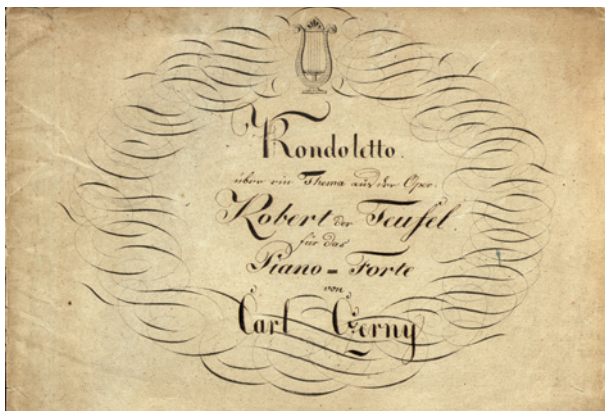 Rondoletto.
über ein Thema aus der Oper:
Robert der Teufel
für das
Piano = Forte
von
Carl Czerny